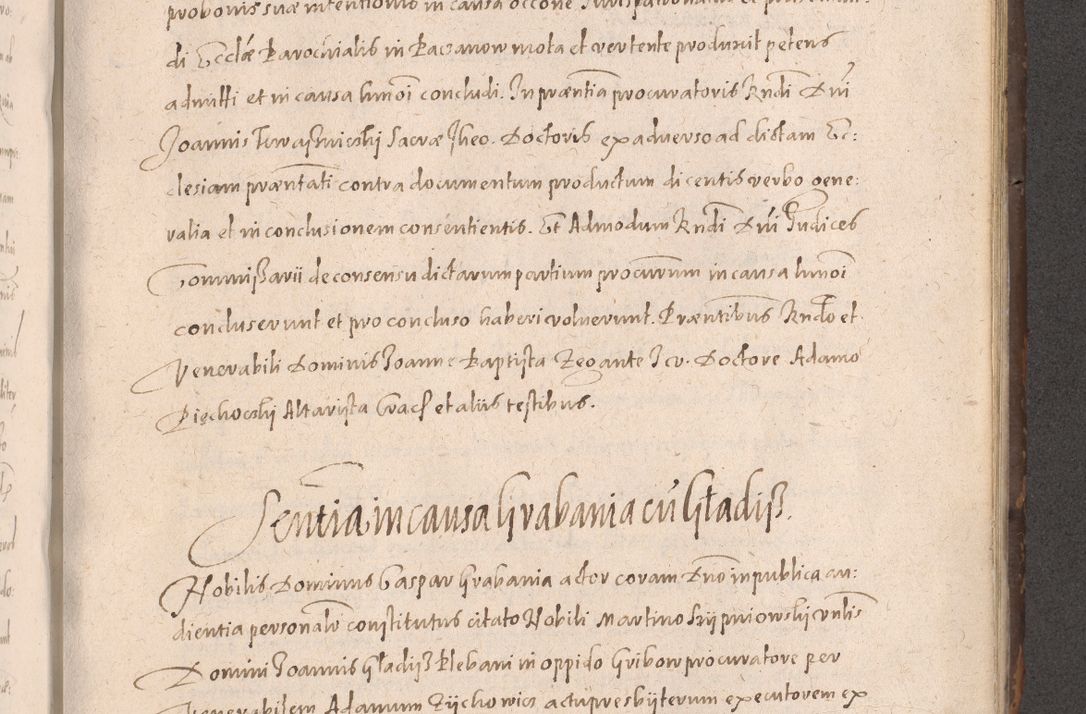 pro bonis suæ intentionis in causa occone Jurispatronatus et
di Ecclæ Parochialis in Paczanow mota et vertente produxit petens
admitti et in causa hmoi concludi. In præntia procuratoris Rndi Dni
Joannis Sacræ Theo. Doctoris ex adverso ad dictam Ec:
clesiam præntati contra documentum productum dicentis verbo gene:
ralia et in conclusionem consentientis. Et Admodum Rndi Dni Judices
Commißarii de consensu dictarum partium procurum in causa hmoi
concluserunt et pro concluso haberi voluerunt. Præntibus Rndo et
Venerabili Dominis Joanne Baptista Zegante J.c.v. Doctore Adamo
Pięchocshi Altarista Crac? et aliis testibus.
Sentia in causa Grabania cũ Gładiß.
Nobilis Dominus Caspar Grabania actor coram Dno in publica au:
dientia personalr constitutus citato Nobili Martino Skrzipniowshi vnlis
Domini Joannis Gładiß Plebani in oppido Gribow procuratore per
Venerabilem Adamum Zijchowicz actu presbijterum executorem ex